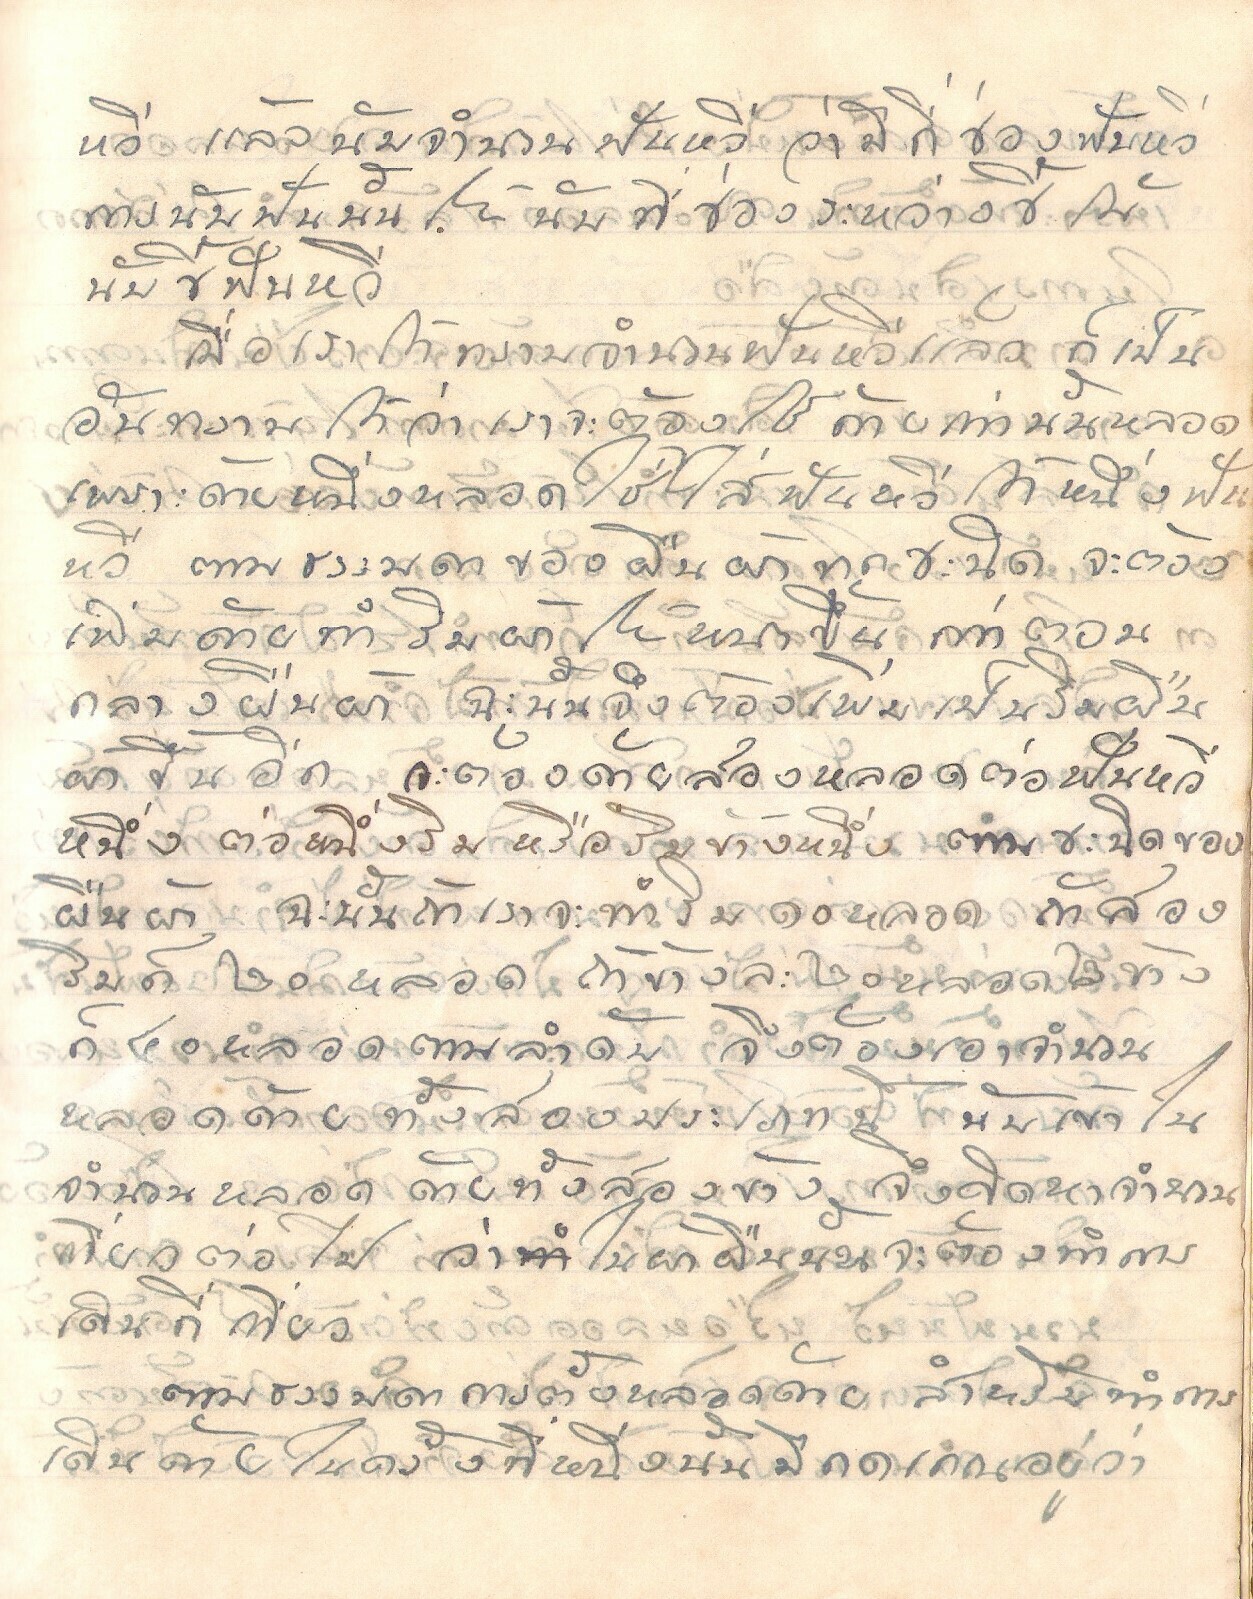 หวี แล้วนับจำนวนฟันหวี ว่ามีกี่ช่องฟันหวี
การนับฟันนั้น ให้นับที่ช่องระหว่างซี่ ไม่
นับซี่ฟันหวี
เมื่อเราได้ทราบจำนวนฟันหวีแล้ว ก็เป็น
อันทราบได้ว่าเราจะต้องใช้ด้ายเท่านั้นหลอด
เพราะด้ายหนึ่งหลอด ใช้ใส่ฟันหวี ได้หนึ่งฟัน
หวี ตามธรรมดาของผืนผ้าทุกชะนิด จะต้อง
เพิ่มด้ายทำริมผ้าให้หนาขึ้น กว่าตอน
กลางผืนผ้า ฉะนั้นจึงต้องเพิ่มเป็นริมผืน
ผ้าขึ้นอีก จะต้องด้ายสองหลอดต่อฟันหวี
หนึ่ง ต่อหนึ่งริมหรือริมข้างหนึ่ง ตามชะนิดของ
ผืนผ้า ฉะนั้นถ้าเราจะทำริม ๑๐หลอด ถ้าสอง
ริมก็ ๒๐ หลอด ถ้าข้างละ ๒๐หลอด ๒ ข้าง
ก็ ๔๐หลอดตามลำดับ จึงต้องเอาจำนวน
หลอดด้ายทั้งสองประเภทนี้ นับเข้าใน
จำนวนหลอดด้ายทั้งสองข้าง จึงคิดหาจำนวน
เที่ยวต่อไป ว่าในผ้าผืนนั้นจะต้องทำการ
เดินกี่เที่ยว
ตามธรรมดาการตั้งหลอดด้าย สำหรับทำการ
เดินด้ายในครั้งที่หนึ่งนั้นมีกดเกณอยู่ว่า